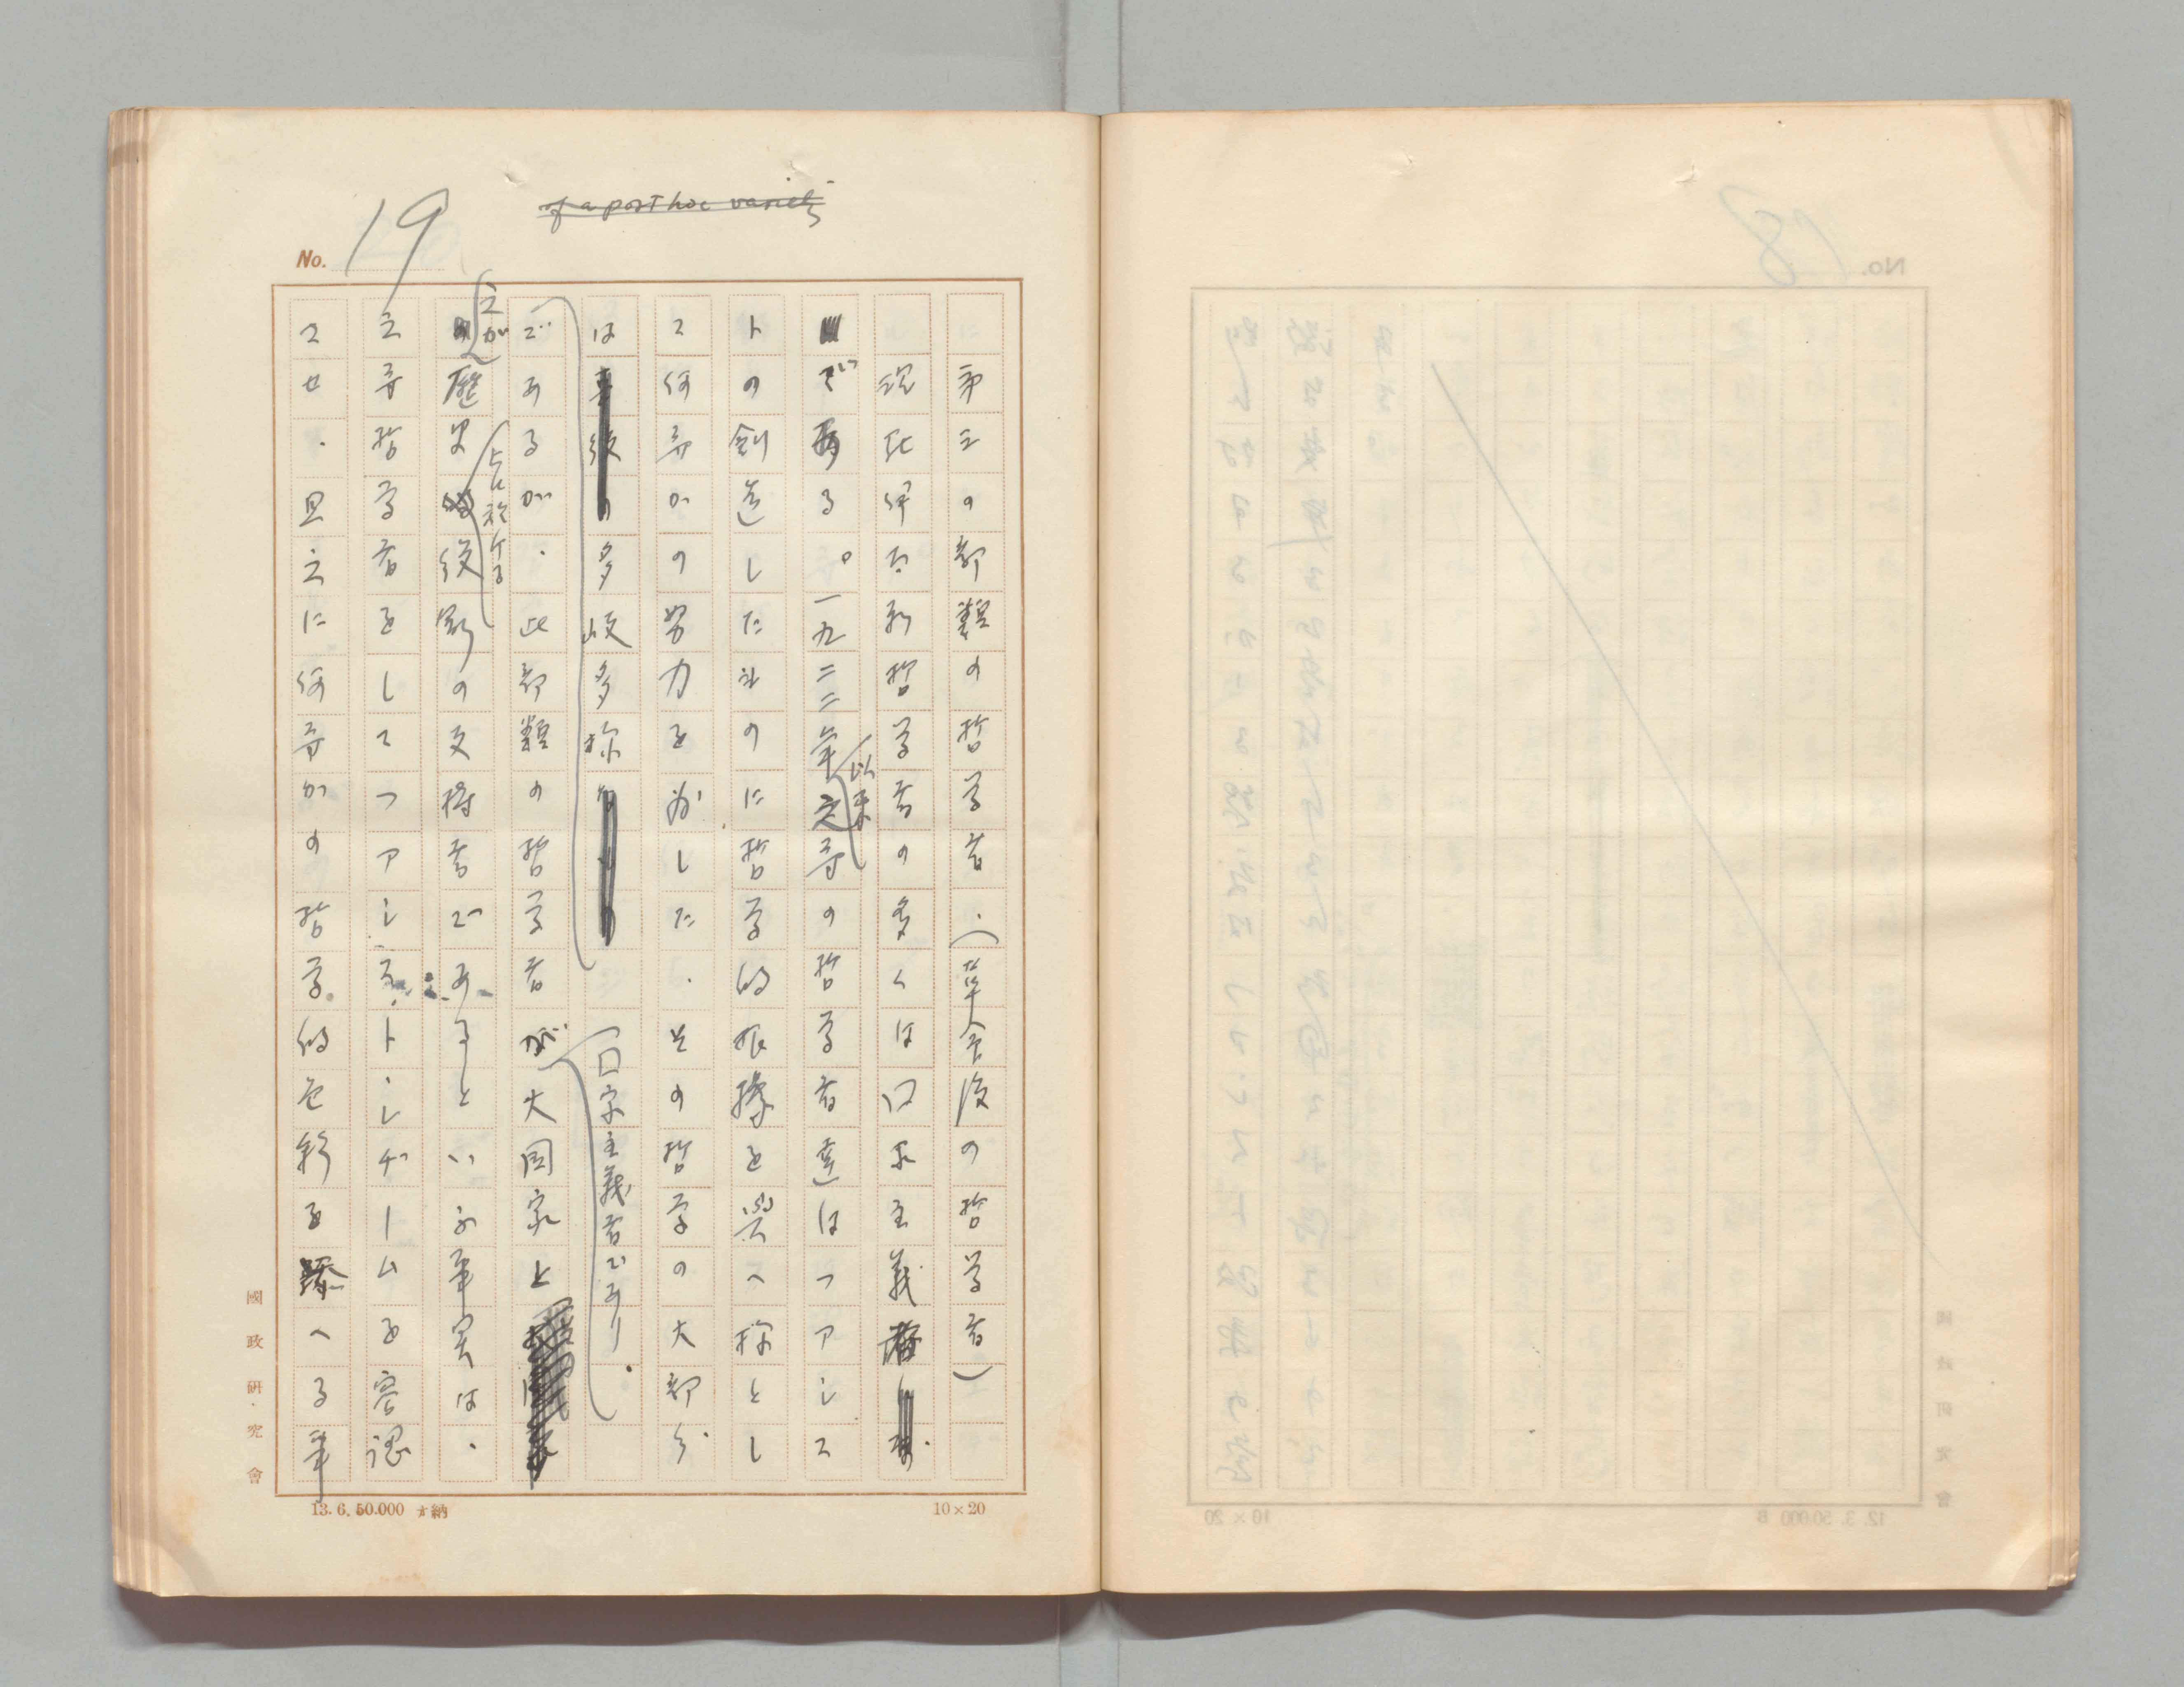 of a post hoc variety
No. 19
第三の部類の哲学者.（革命後の哲学者）
現在伊太利哲学者の多くは国家主義
である。一九二二年之等の哲学者達はファシス
以来
トの創造したものに哲学的根拠を与へ様とし
て何等かの努力を為した.其の哲学の大部分
は 多岐多様
国家主義者であり.
であるが.此部類の哲学者が大国家と
之が
上に於ける
歴史 役割の支持者であるといふ事実は.
之等哲学者をしてファシスト.レヂームを容認
させ.且之に何等かの哲学的色彩を添へる事
國政研究會
13. 6. 50.000 納
10×20